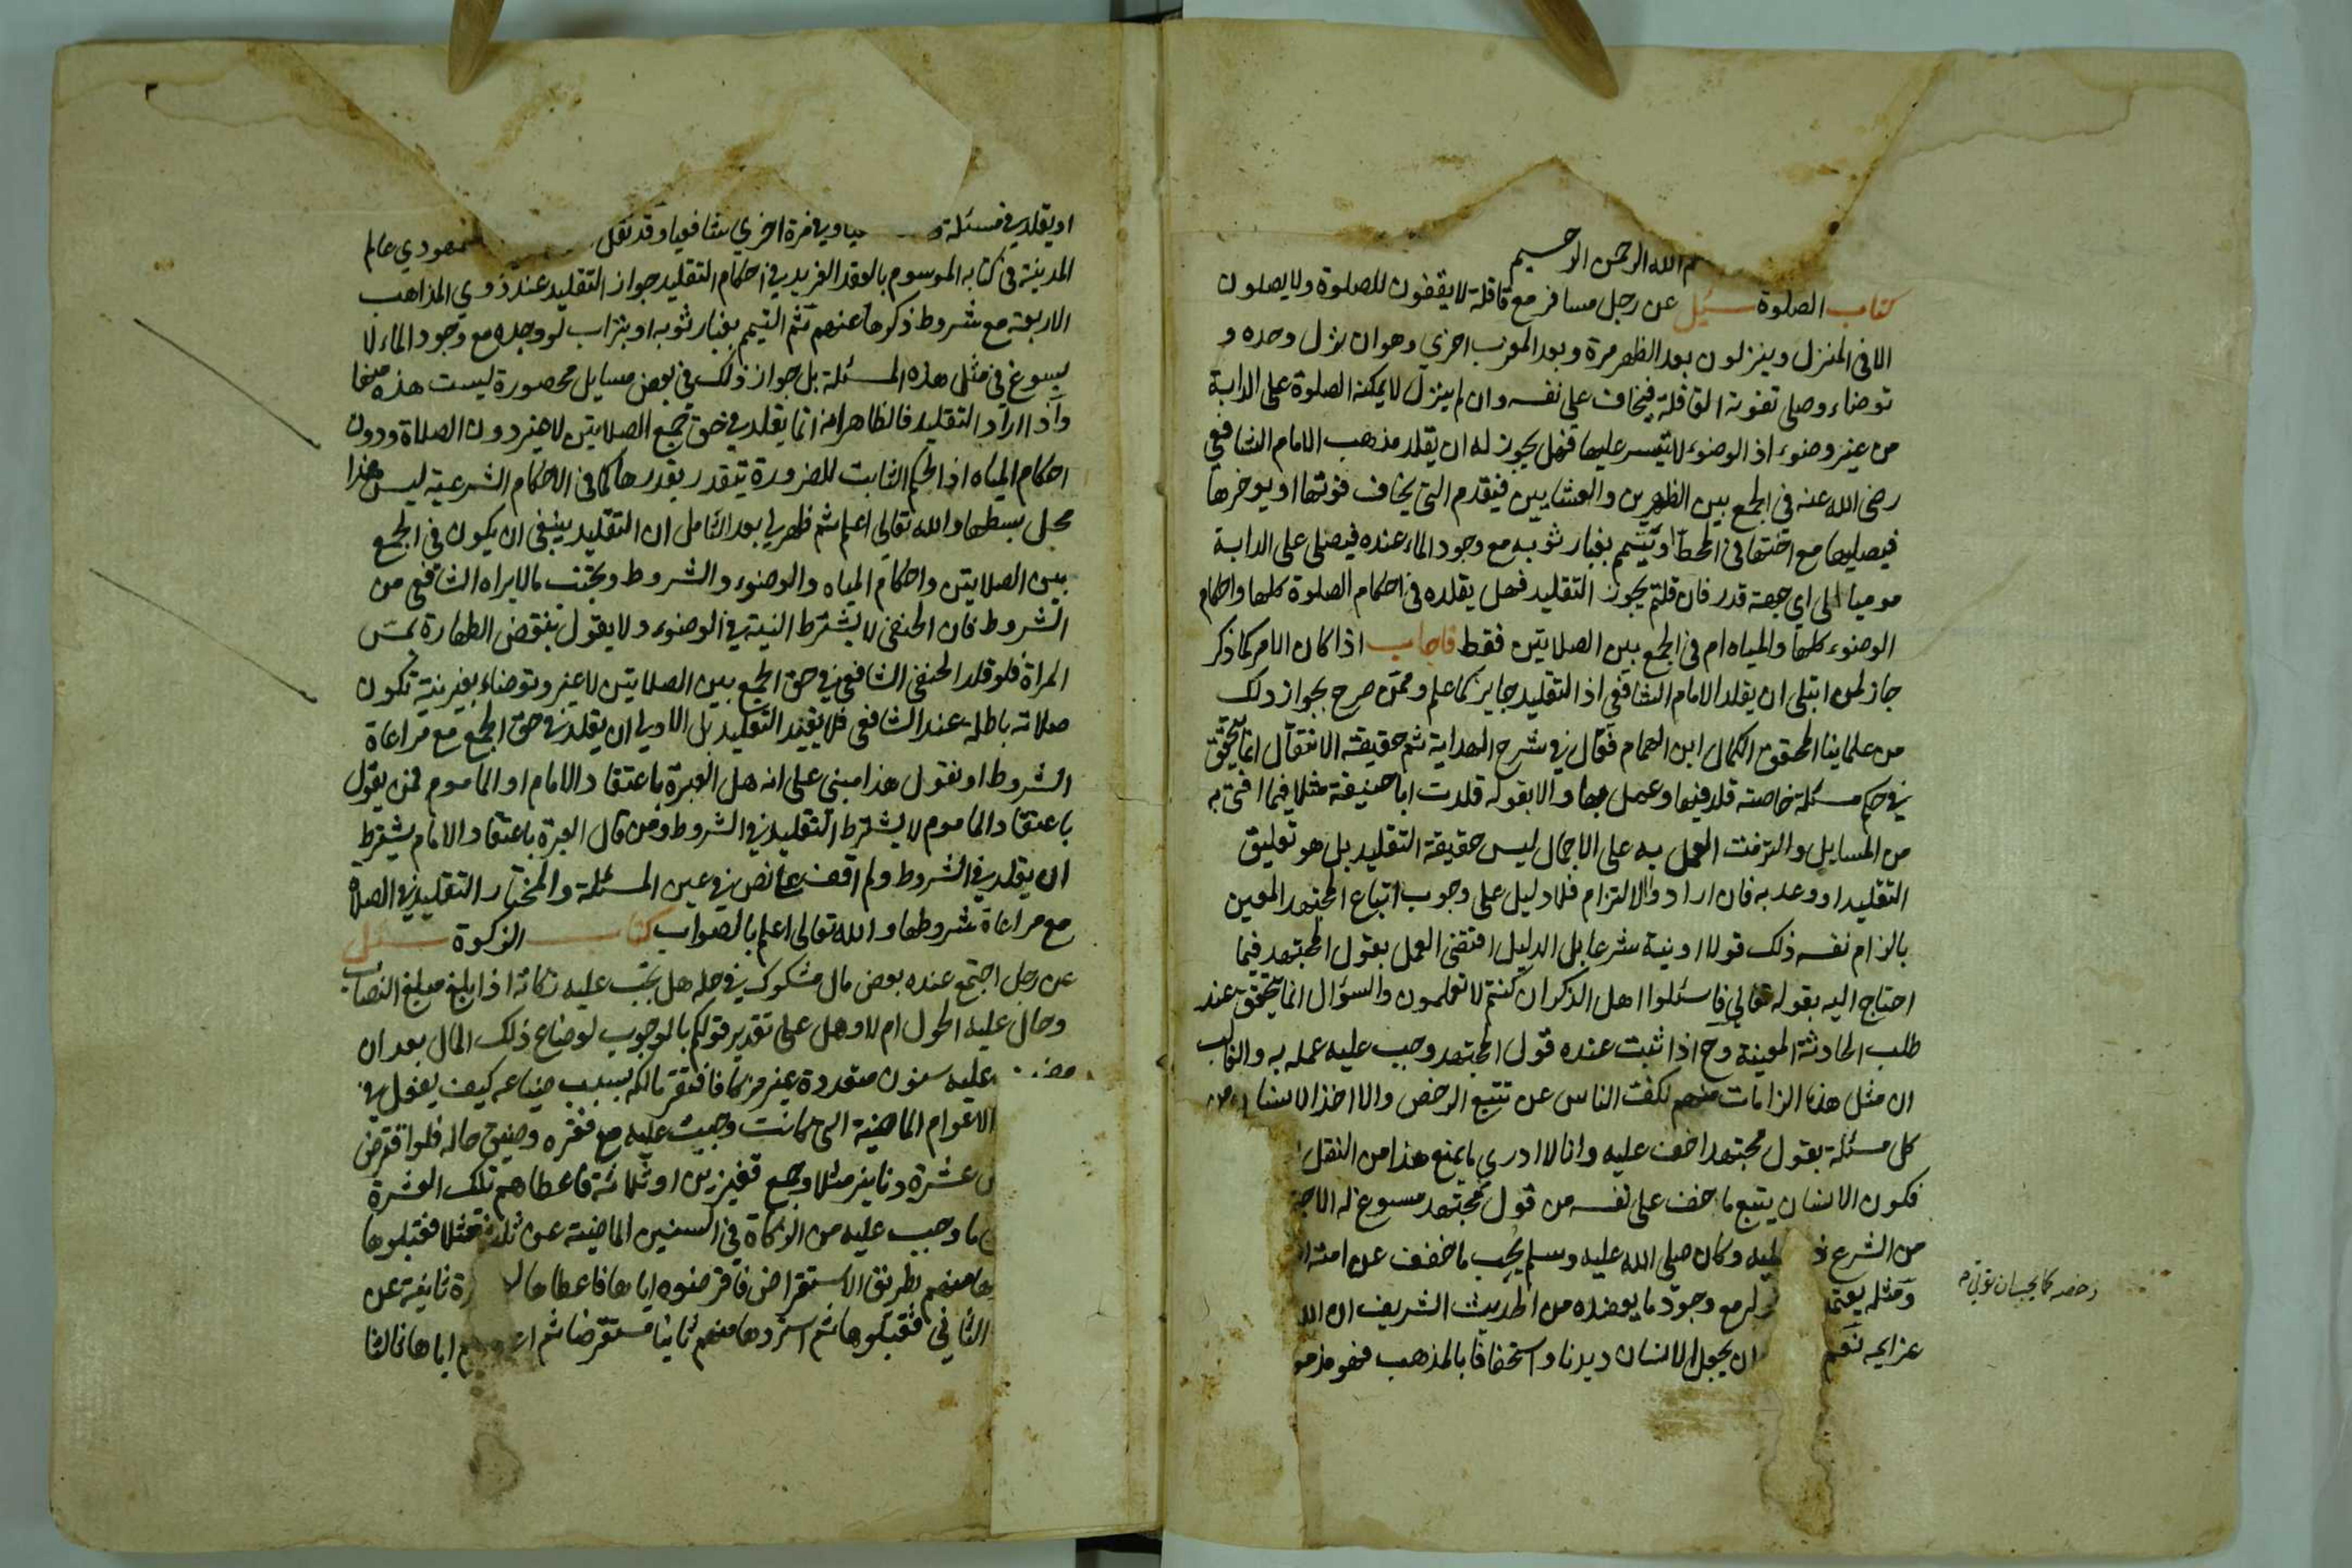 م الله الرحمن الرحيم
كتاب الصلوة سئل عن رجل مسافر مع قافلة لا يقفون للصلوة ولا يصلون
الا في المنزل وينزلون بعد الظهر مرة وبعد المغرب اخري وهو ان نزل وحده و
توضاء وصلى تفوته القافلة فيخاف على نفسه وان لم ينزل لا يمكنه الصلوة على الدابة
من غير وضوء اذ الوضوء لا يتيسر عليها فهل يجوز له ان يقلد مذهب الامام الشافعي
رضى الله عنه في الجمع بين الظهرين والعشايين فيقدم التي يخاف فوتها او يوخرها
فيصليها مع اختها في المحط او يتيمم بغبار ثوبه مع وجود الماء عنده فيصلى على الدابة
موميا الى اي جهة قدر فان قلتم يجوز التقليد فهل يقلده في احكام الصلوة كلها واحكام
الوضوء كلها والمياه ام في الجمع بين الصلايتن فقط فاجاب اذا كان الامر كما ذكر
جاز لمن ابتلى ان يقلد الامام الشافعي اذ التقليد جايز كما علم وممن صرح بجواز ذلك
من علماينا المحقق الكمال ابن الهمام فقال في شرح الهداية ثم حقيقة الانتقال انما يتحقق
في حكم مسئلة خاصة قلد فيها وعمل بها والا بقوله قلدت ابا حنيفة مثلا فيما افتى به
من المسايل والتزمت العمل به على الاجمال ليس حقيقة التقليد بل هو تعليق
التقليد او وعد به فان ارادوا الالتزام فلا دليل على وجوب اتباع المجتهد المعين
بالزام نفسه ذلك قولا او نية شرعا بل الدليل اقتضى العمل بقول المجتهد فيما
احتاج اليه بقوله تعالى فاسئلوا اهل الذكر ان كنتم لا تعلمون والسؤال انما يتحقق عند
طلب الحادثة المعينة وح اذا ثبت عنده قول المجتهد وجب عليه عمله به والغالب
ان مثل هذه الزامات منهم لكف الناس عن تتبع الرخص والا اخذ الانسان في
كل مسئلة بقول مجتهد اخف عليه وانا لا ادري ما يمنع هذا من النقل
فكون الانسان يتبع ما خف على نفسه من قول مجتهد مسوغ له الاجته
من الشرع ذ عليه وكان صلى الله عليه وسلم يحب ما خفف عن امته ا
ومثله يعتمد مع وجود ما يعضده من الحديث الشريف ان الله
رخصه كما يحب ان توتى م
عزايمه نعم ان يجعل الانسان ديدنا واستخفافا بالمذهب فهو مذمو
او يقلد في مسئلة يا وفي مرة اخري شافعيا وقد نقل السمهودي عالم
المدينة في كتابه الموسوم بالعقد الفريد في احكام التقليد جواز التقليد عند ذوي المذاهب
الاربعة مع شروط ذكروها عنهم ثم التيمم بغبار ثوبه او بتراب لو وجده مع وجود الماء لا
يسوغ في مثل هذه المسئلة بل جواز ذلك في بعض مسايل محصورة ليست هذه منها
واذا اراد التقليد فالظاهر انه انما يقلد في حق جمع الصلايتن لا غير دون الصلاة ودون
احكام المياه اذ الحكم الثابت للضرورة يتقدر بقدرها كما في الاحكام الشرعية ليس هذا
محل بسطها والله تعالى اعلم ثم ظهر لي بعد التامل ان التقليد ينبغي ان يكون في الجمع
بين الصلايتن واحكام المياه والوضوء والشروط ويجتنب ما لا يراه الشافعي من
الشروط فان الحنفي لا يشترط النية في الوضوء ولا يقول بنقض الطهارة بمس
المراة فلو قلد الحنفي الشافعي في حق الجمع بين الصلايتن لا غير وتوضاء بغير نية تكون
صلاته باطلة عند الشافعي فلا يفيد التقليد بل الاولى ان يقلد في حق الجمع مع مراعاة
الشروط او نقول هذا مبنى على انه هل العبرة باعتقاد الامام او الماموم فمن يقول
باعتقاد الماموم لا يشترط التقليد في الشروط ومن قال العبرة باعتقاد الامام يشترط
ان يقلد في الشروط ولم اقف على نص في عين المسئلة والمختار التقليد في الصلاة
مع مراعاة شروطها والله تعالى اعلم بالصواب كتاب الزكوة سئل
عن رجل اجتمع عنده بعض مال مشكوك في حله هل يجب عليه زكاته اذا بلغ مبلغ النصاب
وحال عليه الحول ام لا وهل على تقدير قولكم بالوجوب لو ضاع ذلك المال بعد ان
مضى عليه سنون متعددة غير مزكا فافتقر مالكه بسبب ضياعه كيف يفعل في
الاعوام الماضية التي كانت وجبت عليه مع فقره وضيق حاله فلو اقترض
عشرة دنانير مثلا وجمع فقيرين او ثلاثة فاعطاهم تلك العشرة
ما وجب عليه من الزكاة في السنين الماضية عن ثلاثة مثلا فقبلوها
ها منهم بطريق الاستقراض فاقرضوه اياها فاعطاها رة ثانية عن
الثاني فقبلوها ثم استردها منهم ثانيا مستقرضا ثم اياها ثالثا